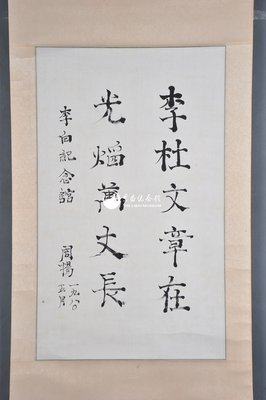 李杜文章在
光焰萬丈長
李白記念館
周揚
一九八〇
五月